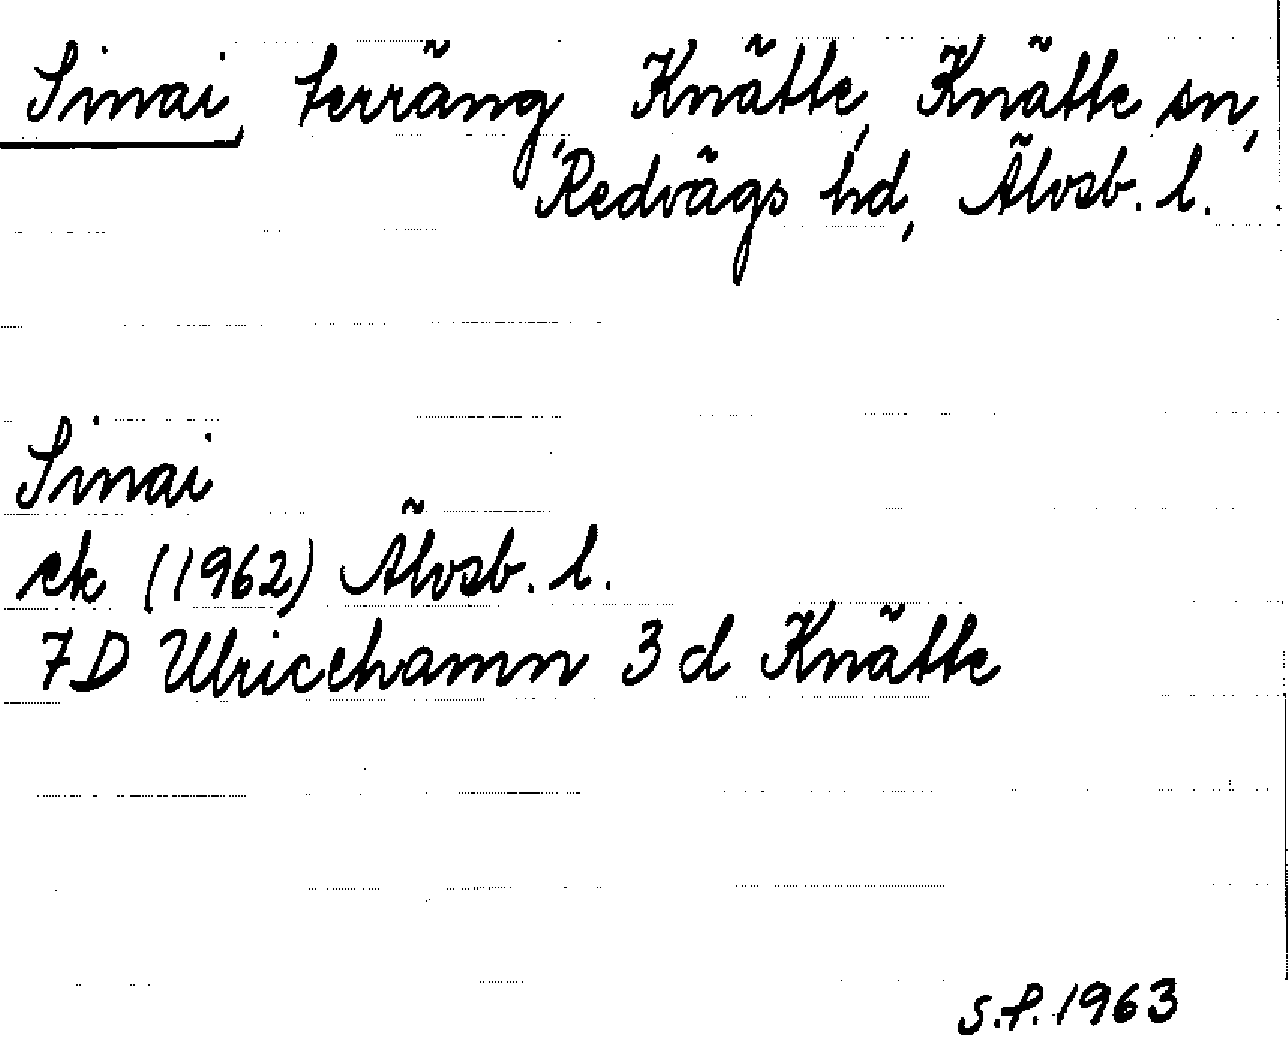 Sinai, terräng, Knätte, Knätte sn,
Redvägs hd, Älvsb. l.
Sinai
ek (1962) Älvsb. l.
7D Ulricehamn 3 d Knätte
S.P. 1963